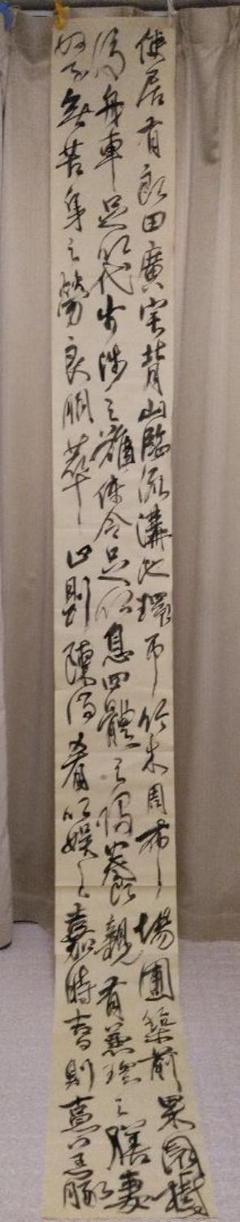 使居有良田廣宅背山臨流溝池環帀竹木周布場圃築前果園樹
後舟車足以代步涉之難使令足以息四體之役養親有兼珍之膳妻
孥無苦身之勞良朋萃止則陳酒肴以娛之嘉時吉則亨羔豚